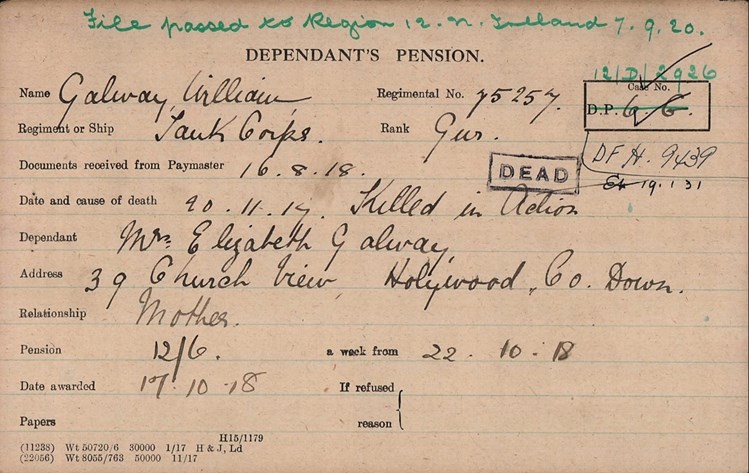 File passed to Region 12. N. Ireland 7.9.20.
DEPENDANT'S PENSION.
12/D/2926
Name Galway, William, Regimental No. 75257. Case No.
D.P.
Regiment or Ship Tank Corps. Rank Gnr.
Documents received from Paymaster 16.8.18. DEAD DFH. 9439
19.1.31
Date and cause of death 20.11.17. Killed in Action
Dependant Mrs Elizabeth Galway,
Address 39 Church View, Holywood, Co. Down.
Relationship Mother.
Pension 12/6. a week from 22.10.18
Date awarded 17.10.18 If refused
Papers reason
H15/1179
(11238) Wt 50720/6 30000 1/17 H & J, Ld
(22056) Wt 8055/763 50000 11/17